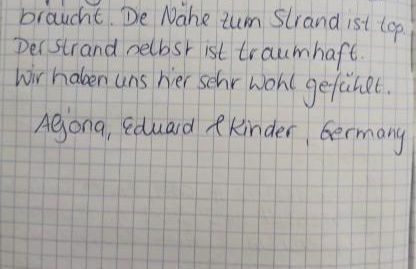 braucht. De Nähe zum Strand ist top.
Der Strand selbst ist traumhaft.
Wir haben uns hier sehr wohl gefühlt.
Aljona, Eduard & Kinder, Germany